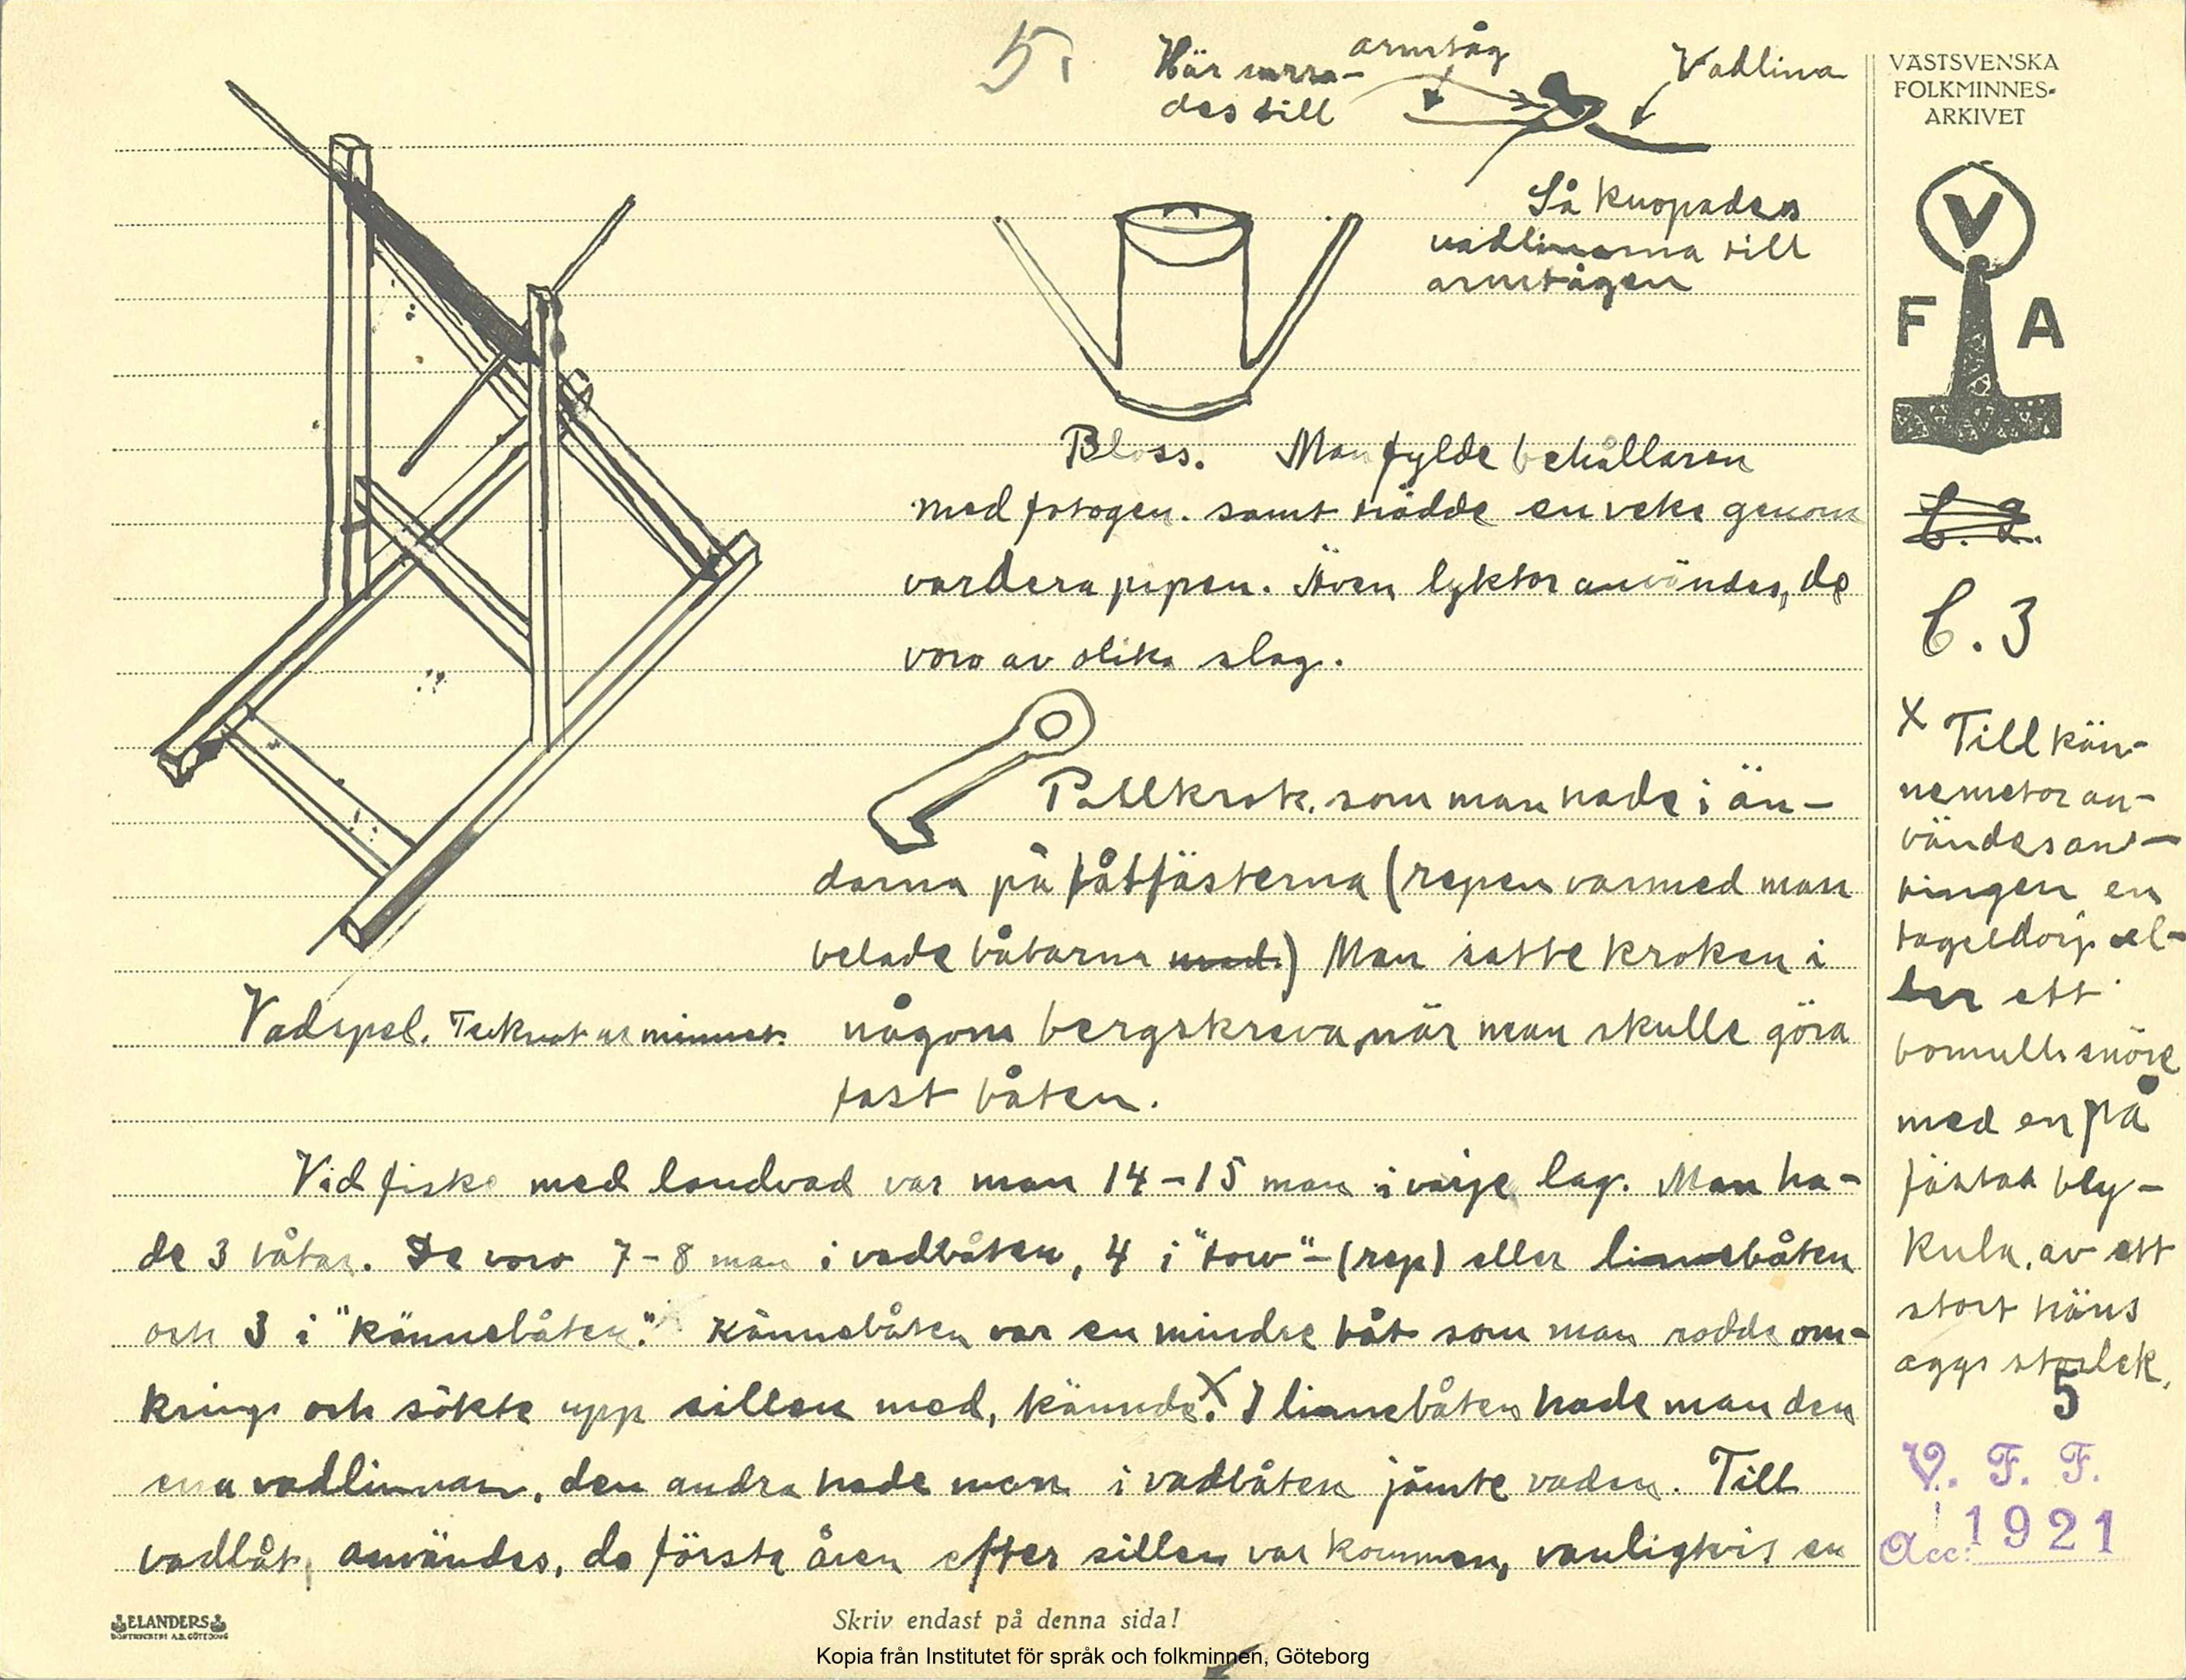 5.
Här surra-
des till
armtåg
Vadlina
Så knopades
vadlinorna till
armtågen
Bloss. Man fylde behållaren
med fotogen. samt trädde en veke genom
vardera pipen. Även lyktor användes, de
voro av olika slag.
Pallkrok, som man hade i än-
darna på båtfästerna (repen varmed man
belade båtarna med.) Man satte kroken i
Vadspel. Tecknat ur minnet.
någon bergskreva, när man skulle göra
fast båten.
Vid fiske med landvad var man 14-15 man i varje lag. Man ha-
de 3 båtar. De voro 7-8 man i vadbåten, 4 i "tow"-(rep) eller linnebåten
och 3 i "kännebåten". Kännebåten var en mindre båt som man rodde om-
kring och sökte upp sillen med, kännde.X I linnebåten hade man den
ena vadlinnan, den andra hade man i vadbåten jämte vaden. Till
vadbåt, användes, de första åren efter sillen var kommen, vanligtvis en
VÄSTSVENSKA
FOLKMINNES-
ARKIVET
V
F A
C. 2.
C. 3
X Till kän-
nemetor an-
vändes ant-
tingen en
tageldörj el-
ler ett
bomullssnöre
med en på
fästad bly-
kula, av ett
stort höns
äggs storlek.
5
V. F. F.
Acc: 1921
ELANDERS
BOKTRYCKERI A.B. GÖTEBORG
Skriv endast på denna sida!
Kopia från Institutet för språk och folkminnen, Göteborg